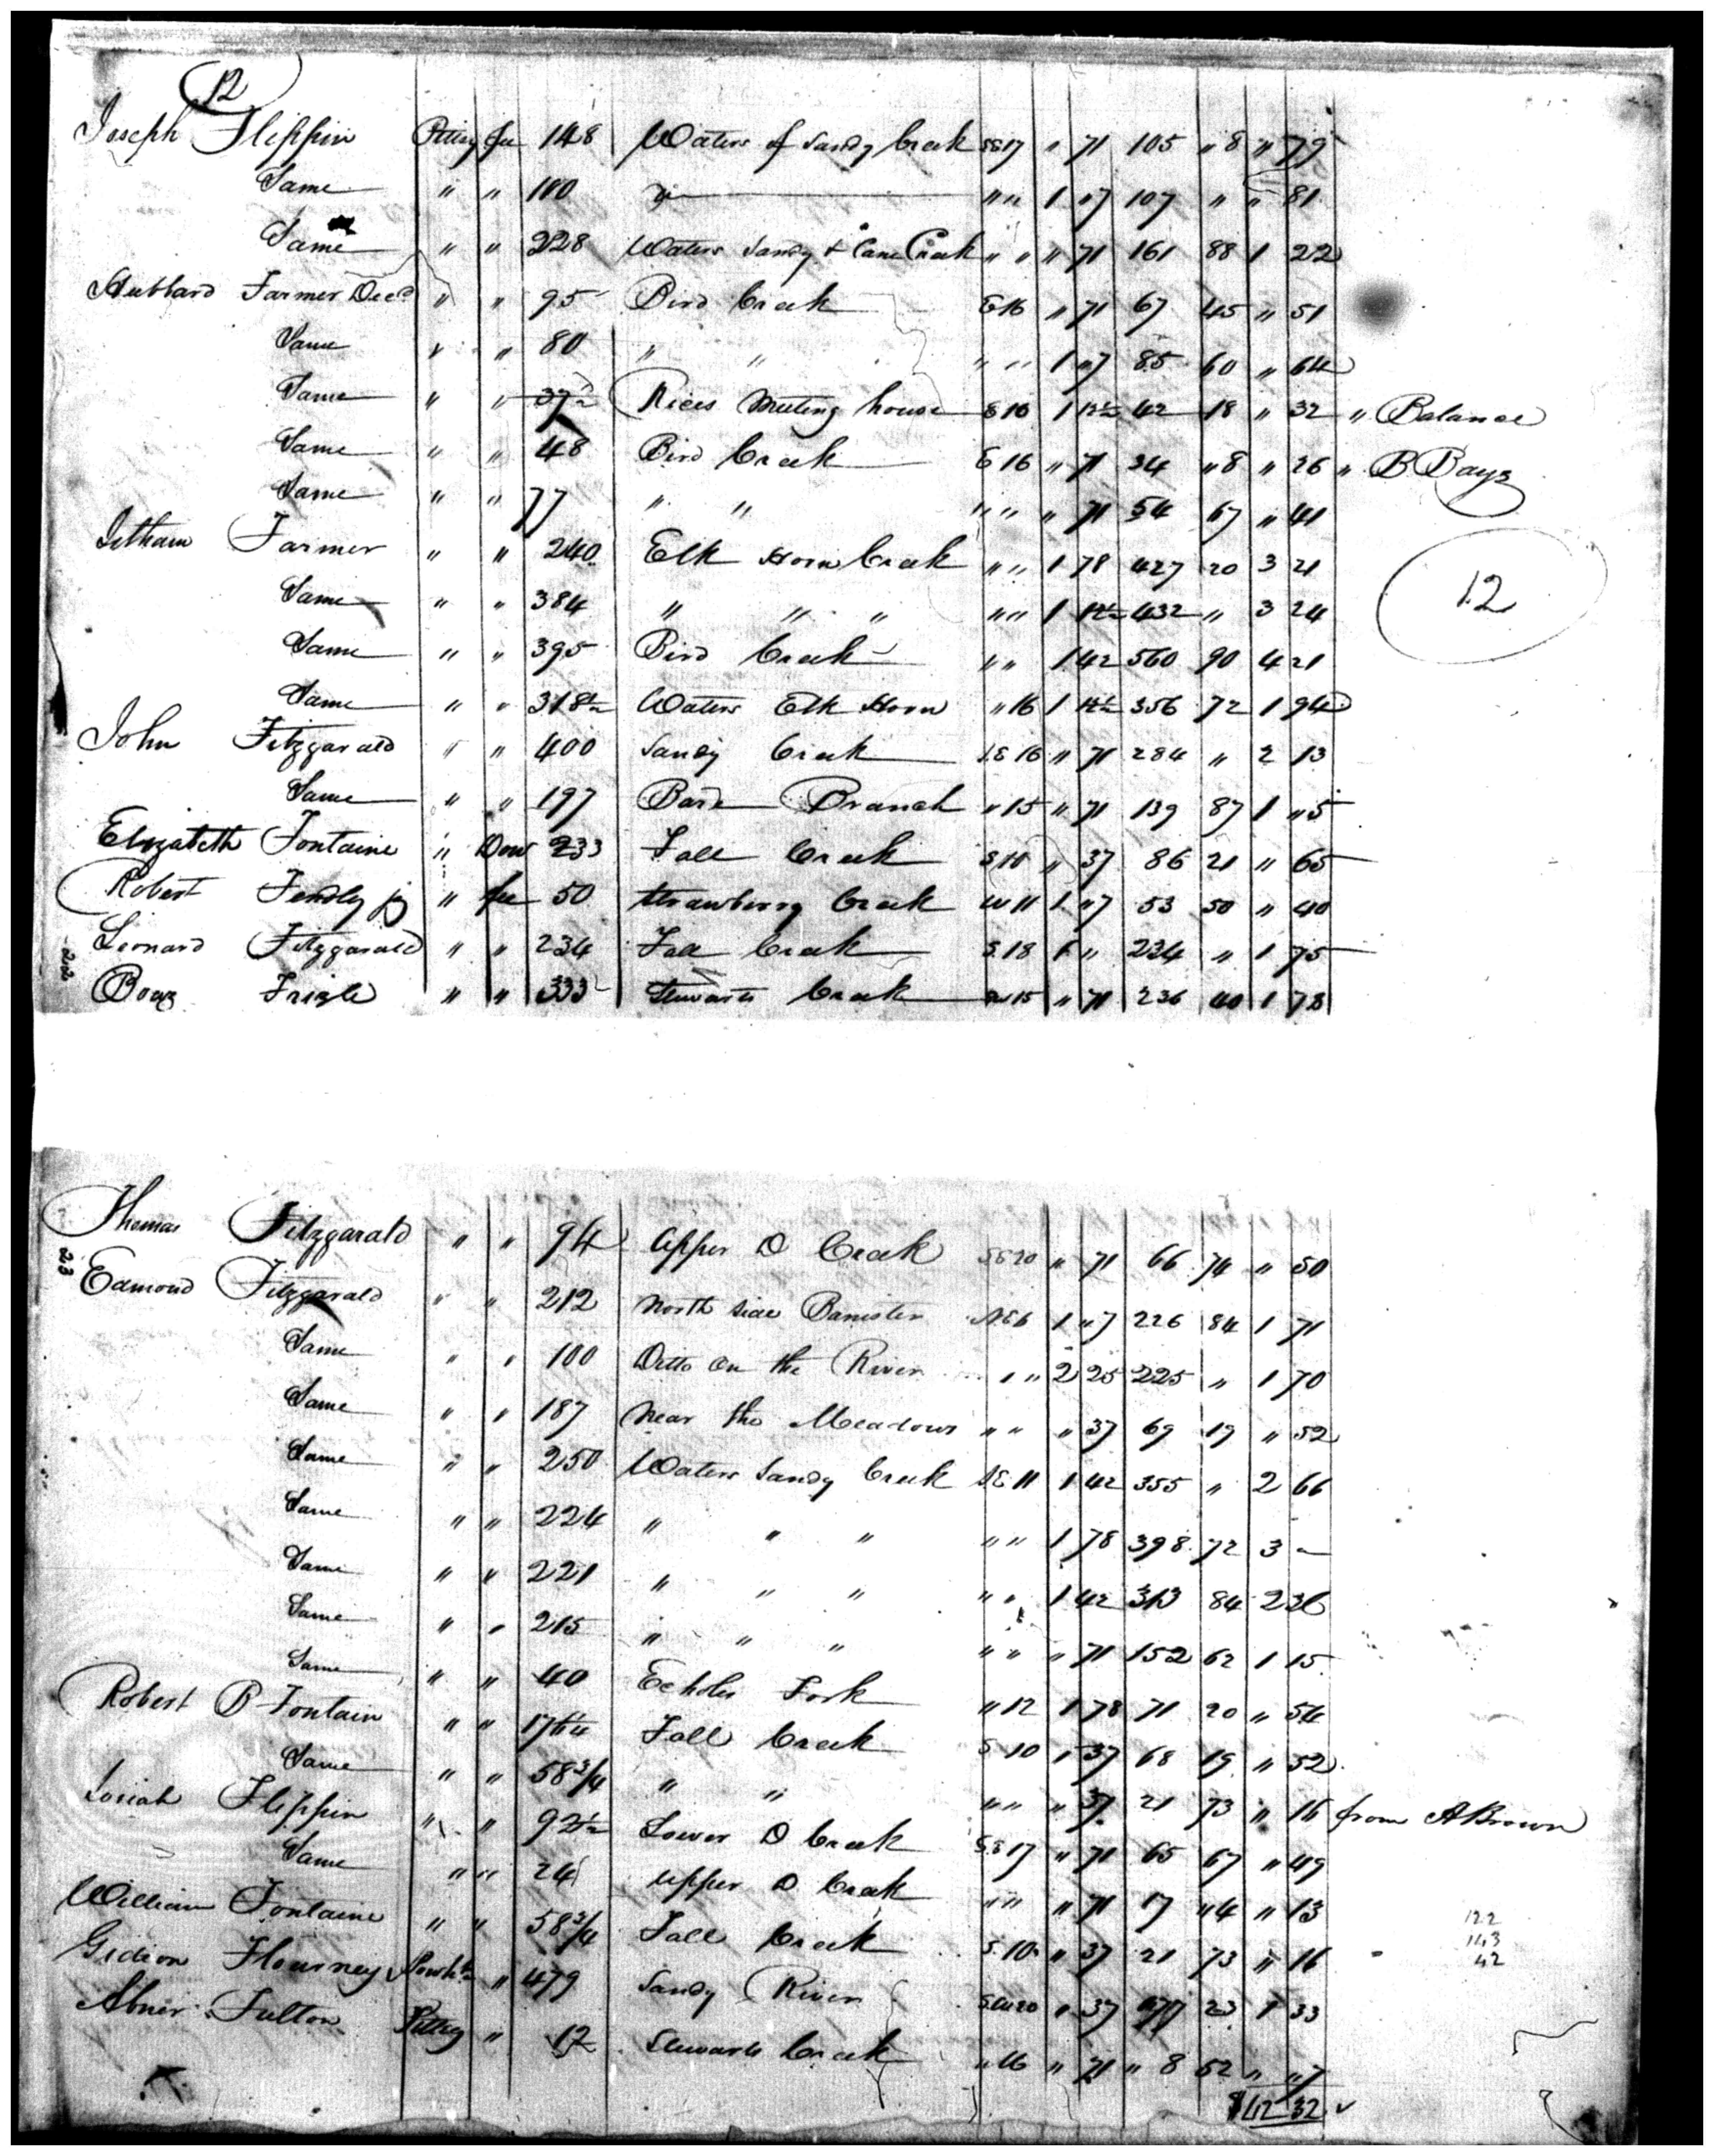 12
Joseph Flippin Pittsy fee 148 Waters of Sandy Creek SE 17 " 71 105 " 8 " 79
Same " " 100 Do " " 1 " 7 107 " " 81
Same " " 228 Waters Sandy & Cane Creek " " " 71 161 88 1 22
Hubbard Farmer Decd " " 95 Bird Creek E 16 " 71 67 45 " 51
Same " " 80 " " " " 1 " 7 85 60 " 64
Same " " 37½ Rices Meeting house E 16 1 12½ 42 18 " 32 " Balance
Same " " 48 Bird Creek E 16 " 71 34 " 8 " 26 " B Bays
Same " " 77 " " " " " 71 54 67 " 41
Jetham Farmer " " 240 Elk Horn Creek " " 1 78 427 20 3 21
12
Same " " 384 " " " " " 1 12½ 432 " 3 24
Same " " 395 Bird Creek " " 1 42 560 90 4 21
Same " " 318½ Waters Elk Horn " 16 1 12½ 356 72 1 94
John Fitzgarald " " 400 Sandy Creek SE 16 " 71 284 " 2 13
Same " " 197 Branch " 15 " 71 139 87 1 " 5
Elizabeth Fontaine " Dow 233 Fall Creek S 10 " 37 86 21 " 65
Robert Fendley " fee 50 Strawberry Creek W 11 1 " 7 53 50 " 40
Leonard Fitzgarald " " 234 Fall Creek S 18 1 " 234 " 1 75
22
Boaz Frizle " " 333 Stewarts Creek SW 15 " 71 236 40 1 78
Thomas Fitzgarald " " 94 Upper D Creek SE 20 " 71 66 74 " 50
23
Edmond Fitzgarald " " 212 North side Banister NE 6 1 " 7 226 84 1 71
Same " " 100 Ditto on the River " " 2 25 225 " 1 70
Same " " 187 Near the Meadows " " " 37 69 19 " 52
Same " " 250 Waters Sandy Creek SE 11 1 42 355 " 2 66
Same " " 224 " " " " " 1 78 398 72 3 –
Same " " 221 " " " " " 1 42 313 84 2 36
Same " " 215 " " " " " " 71 152 62 1 15
Same " " 40 Echoles Fork " 12 1 78 71 20 " 54
Robert B Fontain " " Fall Creek S 10 " 37 68 19 " 52
Same " " 58 3/4 " " " " " 37 21 73 " 16 from A Brown
Josiah Flippin " " 92½ Lower D Creek SE 17 " 71 65 67 " 49
Same " " 24 Upper D Creek " " " 71 17 " 4 " 13
William Fontaine " " 58 3/4 Fall Creek S 10 " 37 21 73 " 16
122
143
42
Gideon Flournoy Powhtn " 479 Sandy River SW 20 " 37 177 23 1 33
Abner Fulton Pittsy " 12 Stewarts Creek " 16 " 71 " 8 52 " " 7
$42 32